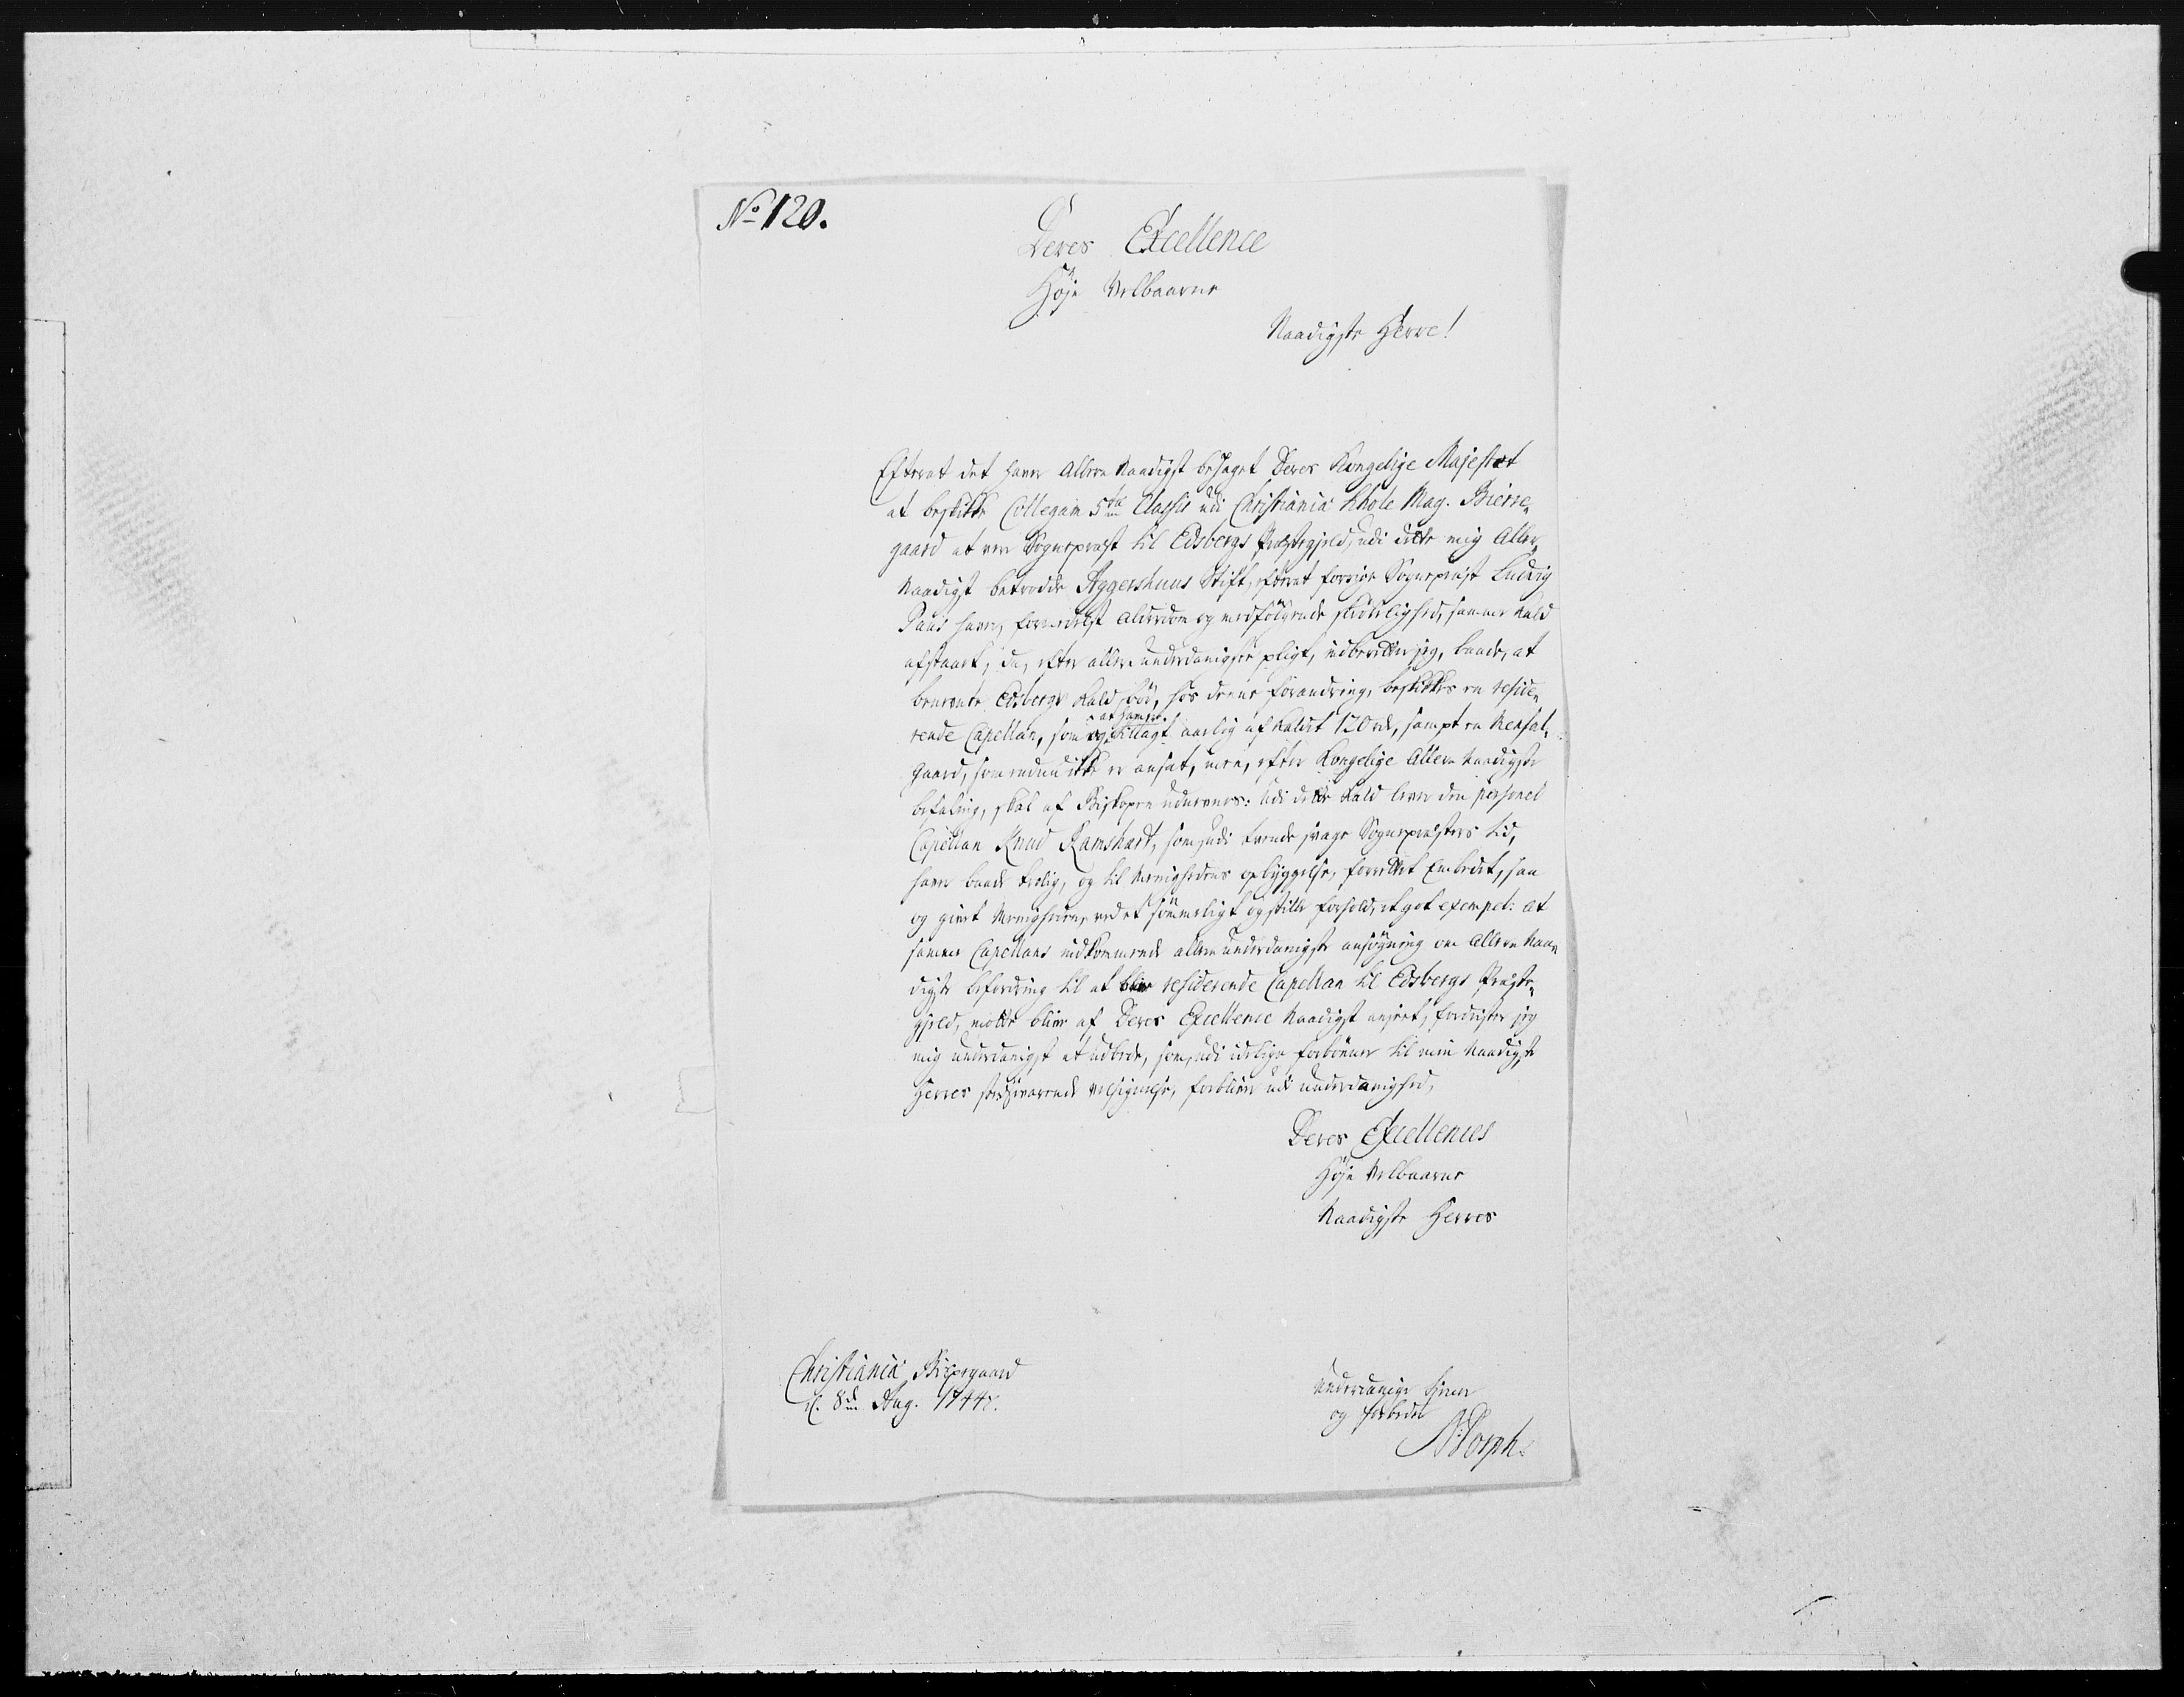 No 120.
Deres Excellence
Høje Velbaarne
Naadigste Herre!
Efterat det haver Allern Naadigst behaget Deres Kongelige Majestæt
at beskikke Collegam 5tæ Classis udi Christiania Skole Mag. Bierre„
gaard at være Sognepræst til Edsbergs Præstegjeld, udi dette mig Aller„
Naadigst betrodde Aggershuus Stift, efterat forrige Sognepræst Ludvig
Paus haver, formedelst Alderdom og medfølgende skrøbelighed, samme Kald
afstaaet; da, efter allerunderdanigste pligt, indberetter jeg, baade, at
bemeente Edsbergs Kald bør, hos denne forandring, beskikkes en reside„
rende Capellan, som er tillagt aarlig af Kaldet 120 rd, sampt en Mensal„
gaard, som endnu ikke er ansat, men, efter Kongelige Allern Naadigste
befaling, skal af Biskopen udnevnes: Udi dette Kald lever den personel
Capellan Knud Ramshart, som, udi tvende svage Sognepræsters tid,
haver baade troelig, og til Menighedens opbyggelse, forrettet Embedet, saa
og givet Menigheden, ved et sømmeligt og stille forhold, et got exempel: At
samme Capellans indkommende allerunderdanigste ansøgning om Allern Naa„
digste befordring til at blive residerende Capellan til Edsbergs Præste„
gjeld, motte blive af Deres Excellence Naadigst anseet, fordrister jeg
mig underdanigst at udbede, som, udi idelige forbønner til min Naadigste
Herres velsignelse, forbliver udi underdanighed,
Deres Excellences
Høje Velbaarne
Naadigste Herres
Christiania Bispegaard
d. 8de Aug. 1744.
underdanige tjener
og forbeder
N. Dorph.